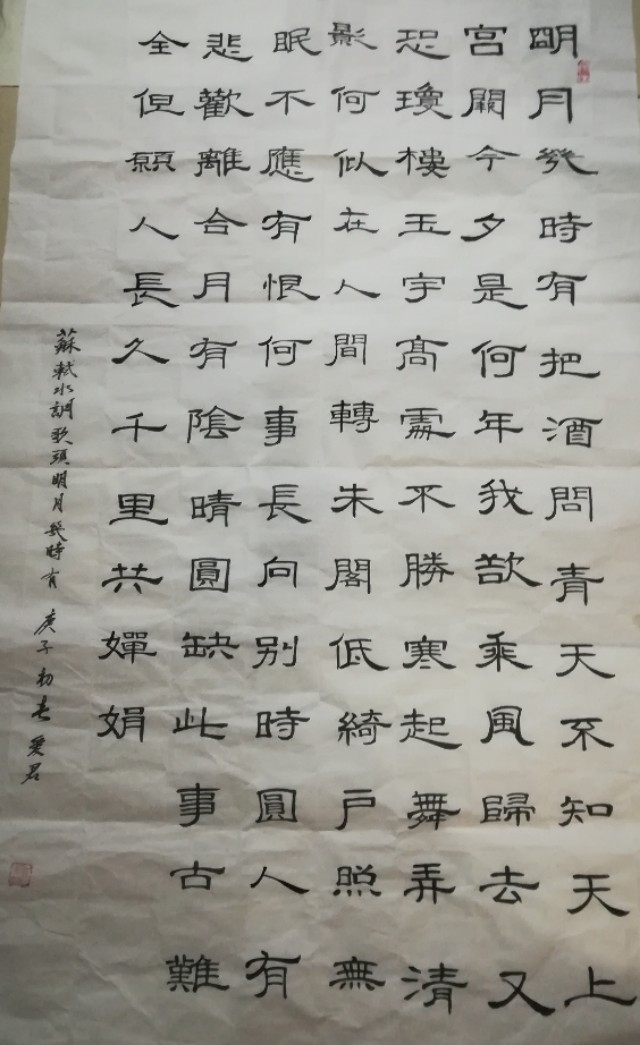 明月幾時有把酒問青天不知天上
宮闕今夕是何年我欲乘風歸去又
恐瓊樓玉宇高處不勝寒起舞弄清
影何似在人間轉朱閣低綺戶照無
眠不應有恨何事長向別時圓人有
悲歡離合月有陰晴圓缺此事古難
全但願人長久千里共嬋娟
蘇軾水調歌頭明月幾時有 庚子初春 愛君